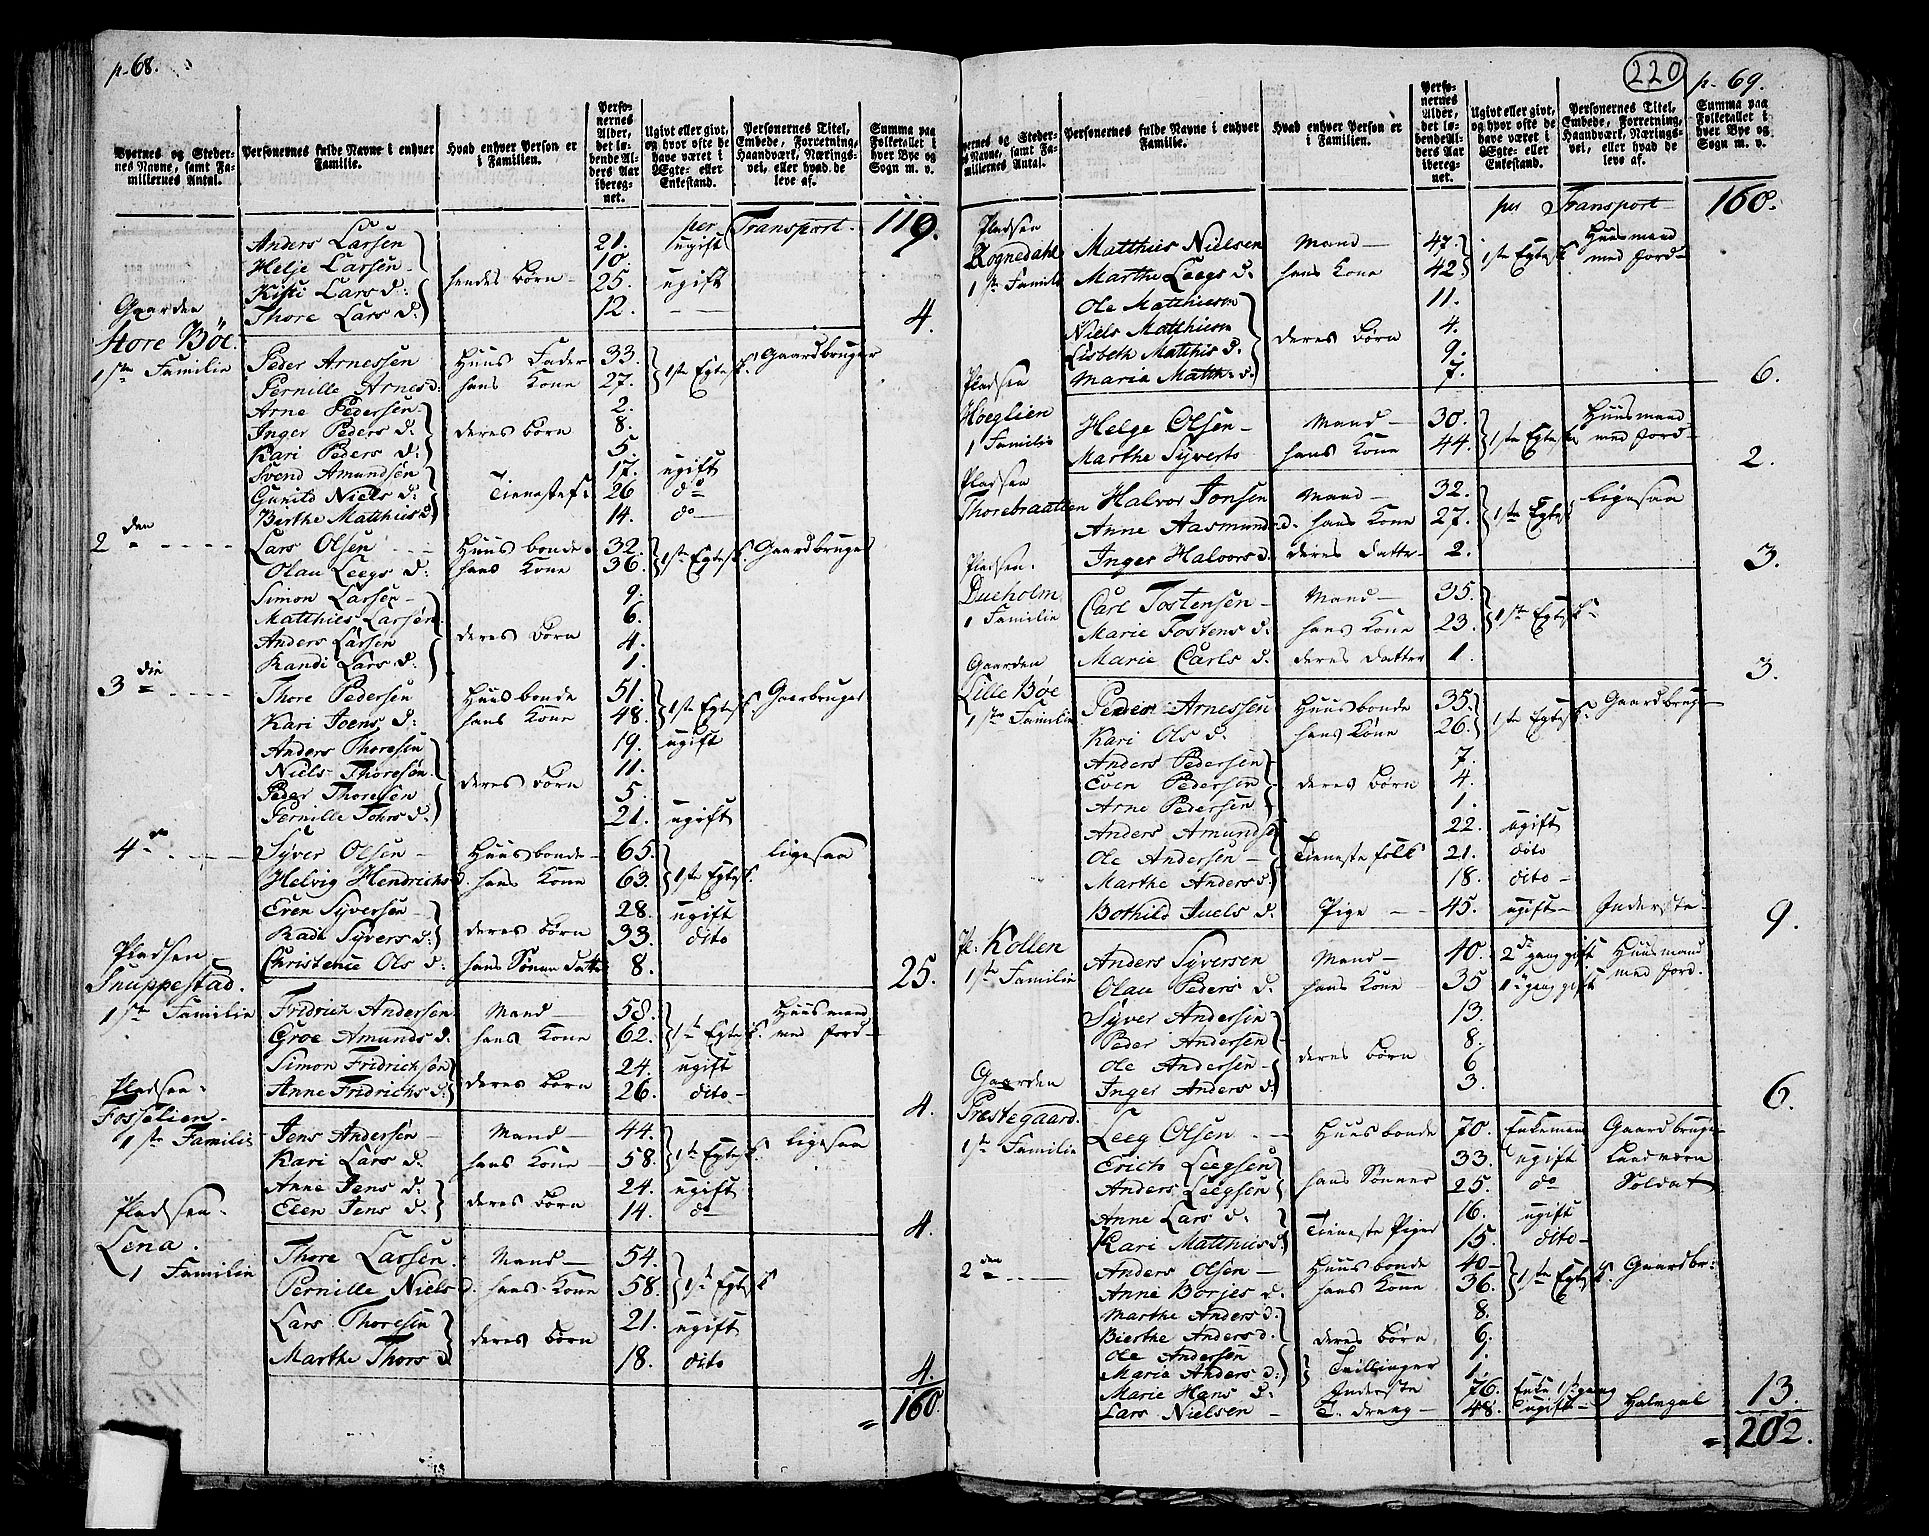 p. 68.
Byernes og Steder-nes Navne, samt Fa-miliernes Antal. | Personernes fulde Navne i enhver Familie. | Hvad enhver Person er i Familien. | Perso-nernes Alder, det lø-bende Al-ders Aar iberegnet. | Ugivt eller givt, og hvor ofte de have været i Ægte- eller Enkestand. | Personernes Titel, Embede, Forretning, Haandværk, Nærings-vei, eller hvad de leve af. | Summa paa Folketallet i hver Bye og Sogn m. v.
per Transport - 119.
Anders Larsen 21. ugift
Helje Larsen 10.
Kisti Lars d: hendes børn 25. ugift
Thore Lars d. 12. - 4.
Gaarden Store Bøe. 1ste Familie
Peder Arnessen Huus Fader 33. 1ste Egtesk. Gaardbruger
Pernille Arnes d: hans Kone 27.
Arne Pedersen 2.
Inger Peders d. deres børn 8.
Kari Peders d. 5.
Svend Amundsen 17. ugift
Gunild Niels d. Tienestef: 26 do
Birthe Matthies d. 14. do
2den
Lars Olsen Huusbonde 32. 1ste Egtesk. Gaardbruger
Olau Leegs d. hans Kone 36.
Simon Larsen 9.
Matthies Larsen 6.
Anders Larsen deres børn 4.
Randi Lars d. 1.
3die
Thore Pedersen Huusbonde 51. 1ste Egtesk. Gaarbruger
Kari Joens d. hans Kone 48.
Anders Thoresen 19. ugift
Niels Thoresøn 11.
Peder Thoresen deres børn 5.
Pernille Tohrs d. 21. ugift
4de
Syver Olsen Huusbonde 65. 1ste Egtesk. ligesaa
Helvig Hendrichs d. hans Kone 63.
Even Syversen 28. ugift
Radi Syvers d. deres børn 33. dito
Christence Ols d. hans Sønne datter 8. 25.
Pladsen Snuppestad. 1ste Familie
Fridrich Andersen Mand 58. 1ste Egtesk. Huusmand med Jord
Groe Amunds d. hans Kone 62.
Simon Fridrichsøn 24. ugift
Anne Fridrichs d. deres børn 26. dito 4.
Pladsen Fosselien. 1ste Familie
Jens Andersen Mand 44. 1ste Egtesk. ligesaa
Kari Lars d. hans Kone 58.
Anne Jens d. 24. ugift
Elen Jens d. deres børn 14. do 4.
Pladsen Lena. 1 Familie
Thore Larsen. Mand 54. 1st Egtesk
Pernille Niels d. hans Kone 58.
Lars Thoresen 21. ugift
Marthe Thors d. deres børn 18. dito 4.
= 160.
220 p. 69.
Byernes og Steder-nes Navne, samt Fa-miliernes Antal. | Personernes fulde Navne i enhver Familie. | Hvad enhver Person er i Familien. | Perso-nernes Alder, det lø-bende Al-ders Aar ibereg-net. | Ugivt eller givt, og hvor ofte de have været i Ægte- eller Enkestand. | Personernes Titel, Embede, Forretning, Haandværk, Nærings-vei, eller hvad de leve af. | Summa paa Folketallet i hver Bye og Sogn m. v.
per Transport 160.
Pladsen Rognedahl 1ste Famili
Matthies Nielsen Mand 47. 1ste Egtesk Huusmand med Jord
Marthe Leegs d. hans Kone 42.
Ole Matthiesen 11.
Niels Matthiesen 4.
Lisbeth Matthis d. deres børn 9.
Maria Matth: d. 7. 6.
Pladsen Hoeglien 1 Familie
Helge Olsen Mand 30. 1ste Egtesk Huusmand med Jord
Marthe Syverts hans Kone 44. 2.
Pladsen Thorebraatten
Halvor Jonsen Mand 32. 1ste Egtesk ligesaa
Anne Aasmunds d. hans Kone 27.
Inger Halvors d. deres datter 2. 3.
Pladsen. Dueholm 1 Familie
Carl Tostensen Mand 35. 1ste Egtesk
Marie Tostens d. hans Kone 23.
Marie Carls d. deres datter 1. 3.
Gaarden Lille Bøe 1ste Familie
Peder Arnessen Huusbonde 35. 1ste Egtesk. Gaardbrug
Kari Ols d. hans Kone 26.
Anders Pedersen 7.
Even Pedersen deres børn 4.
Arne Pedersen 1.
Anders Amunds 22. ugift
Ole Andersen Tieneste folk 21. dito
Marthe Anders d. 18. dito
Bothild Juels d. Pige 45. ugift Inderste 9.
Pl: Kollen 1ste Familie
Anders Syversen Mand 40. 2d gang gift Huusmand med Jord.
Olau Peders d. hans Kone 35 1. gang gift
Syver Andersen 13.
Peder Andersen 8.
Ole Andersen deres børn 6
Inger Anders d. 3. 6.
Gaarden Prestegaard. 1ste Familie
Leeg Olsen Huusbonde 70. Enkemand Gaardbruger
Erich Leegsen 33. ugift Landværn
Anders Leegsen hans Sønner 25. do Soldat
Anne Lars d. 16. ugift
Kari Matthies d. Tieneste Piger 15. dito
2den
Anders Olsen Huusbonde 40 1ste Egtesk. Gaardbr:
Anne Borjes d. hans Kone 36.
Marthe Anders d. 8.
Bierthe Anders d. deres børn 6.
Ole Andersen 1.
Maria Anders d. Tvillinger 1.
Marie Hans d. Inderste 76. Enke 1ste gang
Lars Nielsen T. dreng 48. ugift Halvgal 13.
= 202.